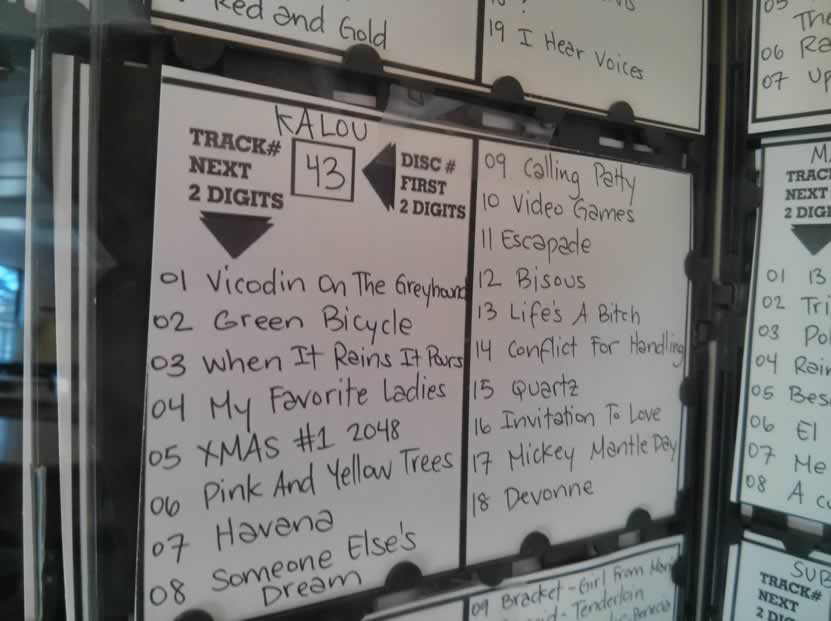 Red and Gold
19 I Hear Voices
05
06
07 Up
KALOU
TRACK#
NEXT
2 DIGITS
43
DISC #
FIRST
2 DIGITS
01 Vicodin On The Greyhound
02 Green Bicycle
03 When It Rains It Pours
04 My Favorite Ladies
05 XMAS #1 2048
06 Pink And Yellow Trees
07 Havana
08 Someone Else's
Dream
09 Calling Patty
10 Video Games
11 Escapade
12 Bisous
13 Life's A Bitch
14 Conflict For Handling
15 Quartz
16 Invitation To Love
17 Mickey Mantle Day
18 Devonne
09 Bracket - Girl From
Tenderloin
NEXT
01
02
03
04
05
06 El
07 Me
08 A
SUB
TRACK#
NEXT